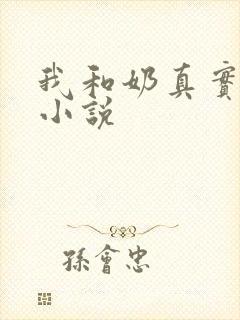 我和奶真實
小說
孫會忠